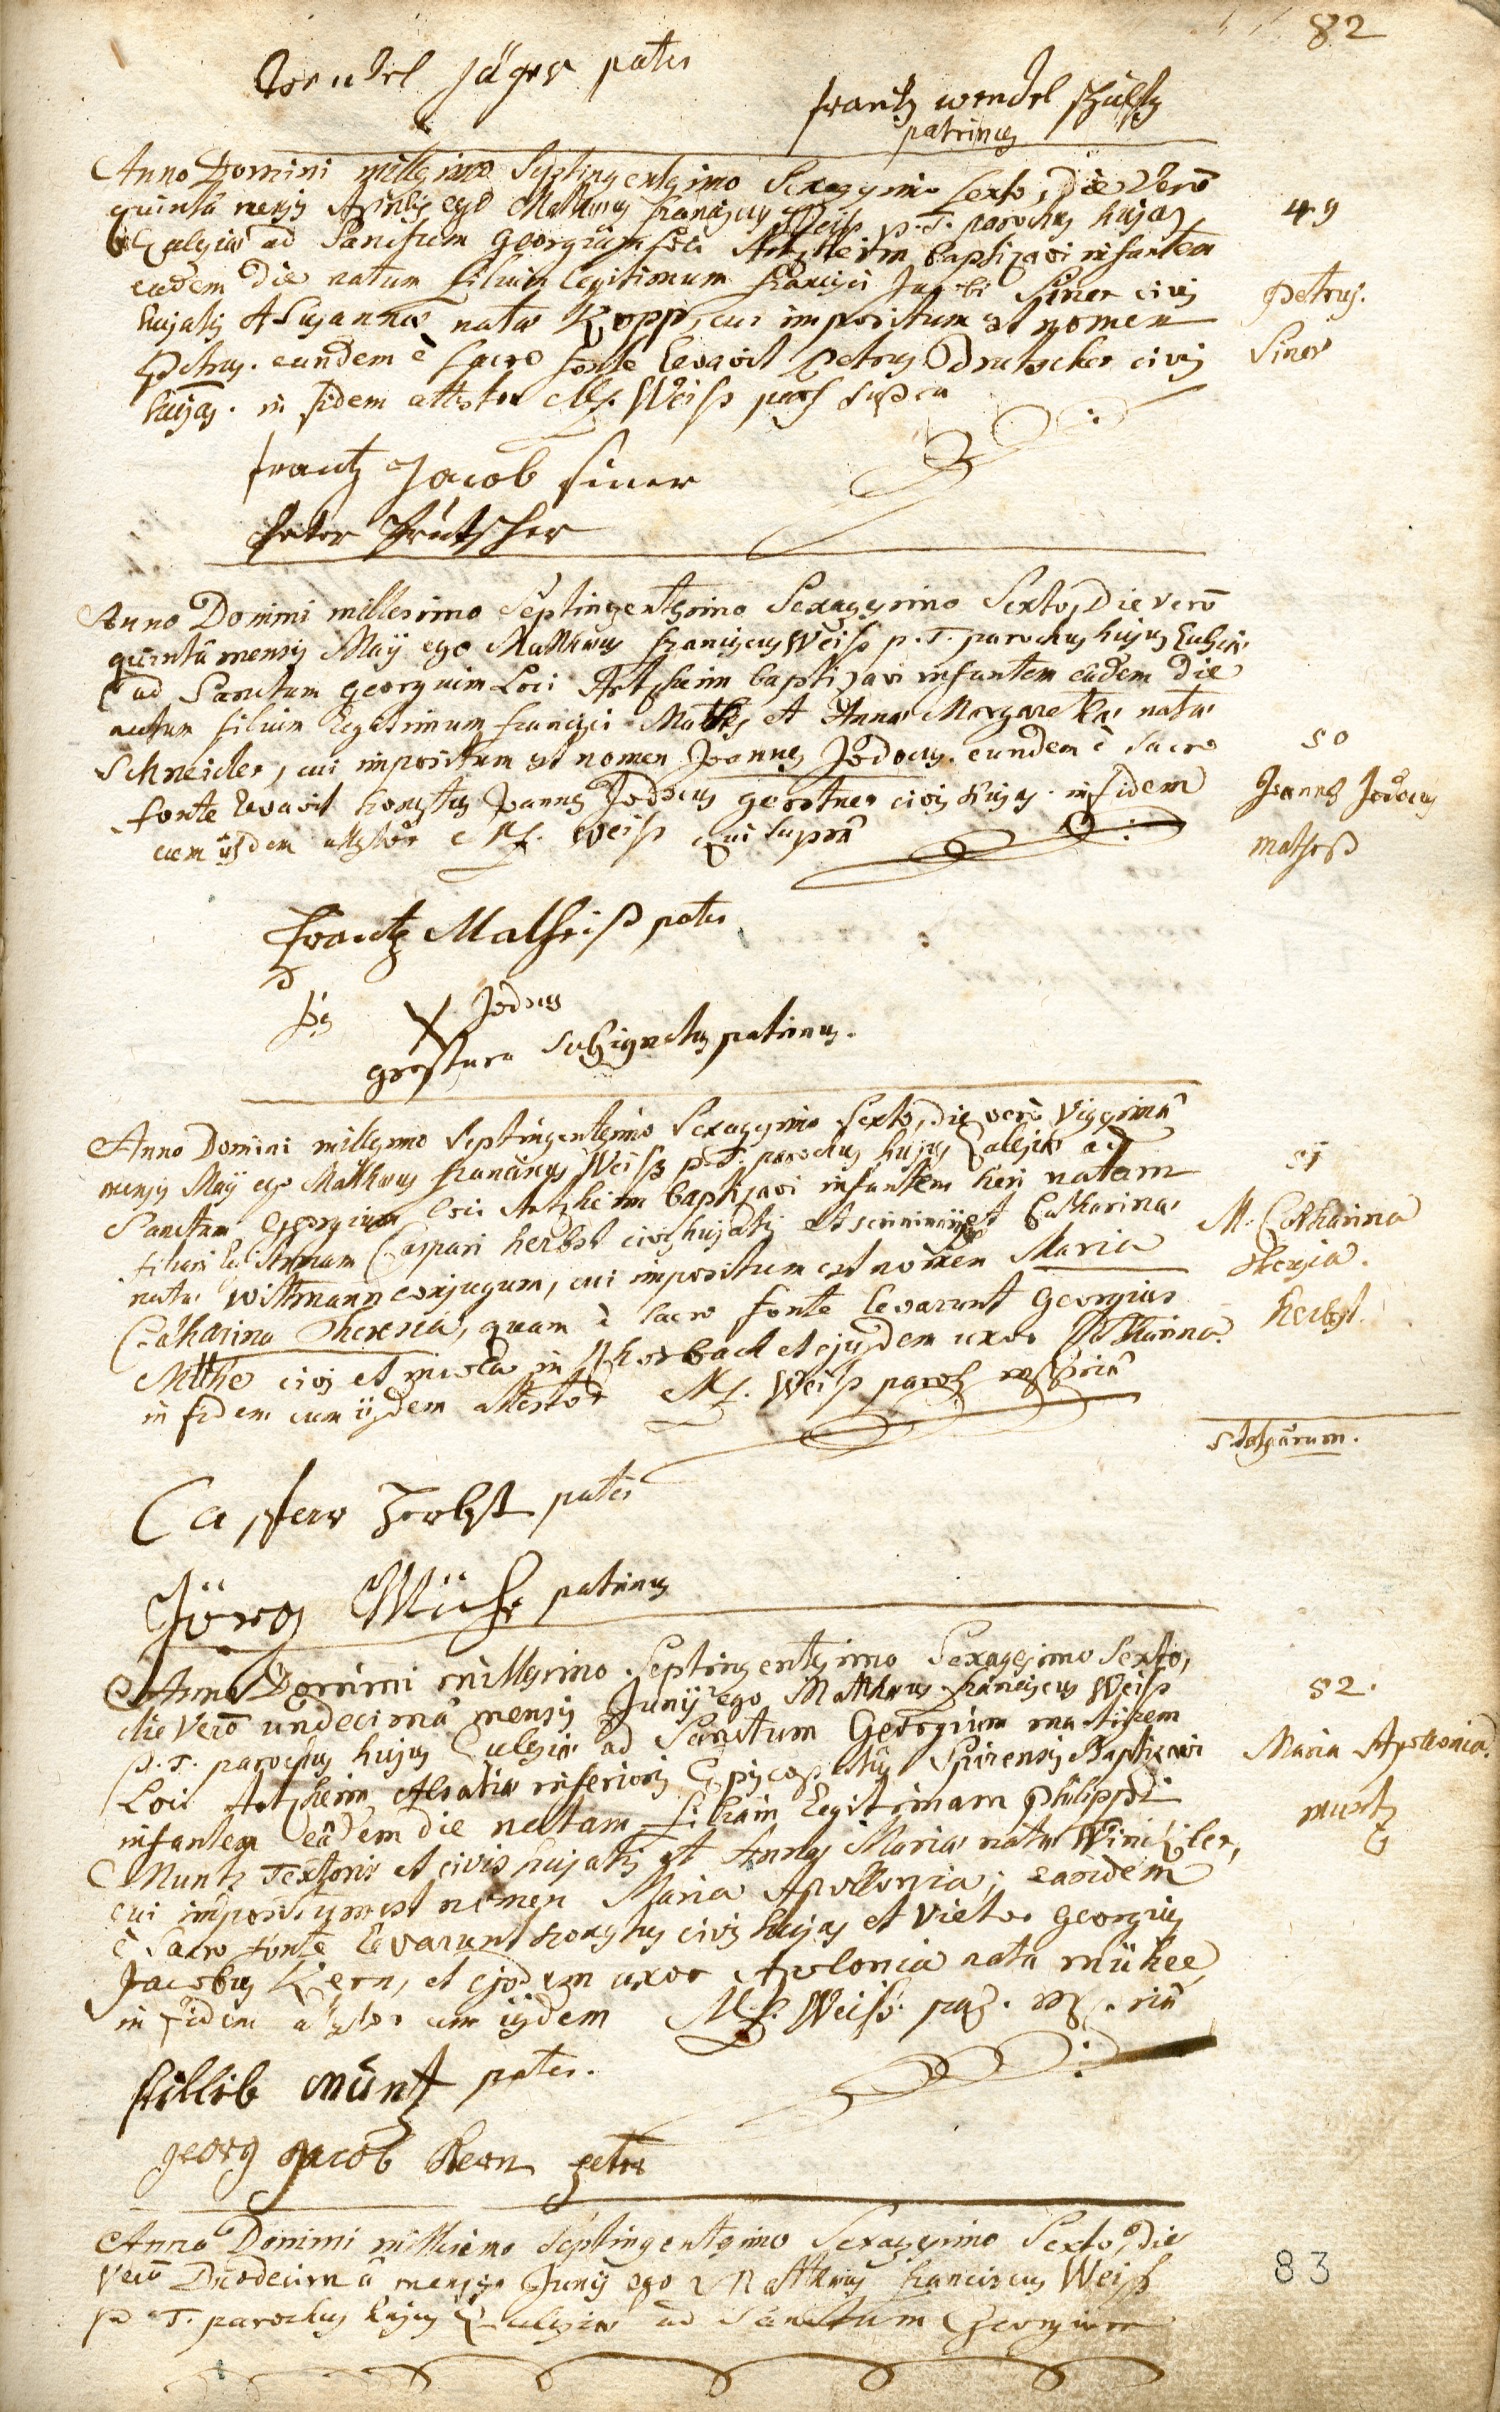 82
Wendel Jäger pater
frantz wendel schultz
patrinus
Anno Domini millesimo Septingentesimo Sexagesimo Sexto, Die Verò
quintâ mensis Aprilis ego Matthæus franciscus Weiss p. T. parochus hujus
Ecclesiæ ad Sanctum Georgium Loci Artzheim baptizavi infantem
49
eâdem Die natum filium legitimum francisci Jacobi Siner civis
hujatis et Susannæ natæ Kopp, cui impositum est nomen
Petrus. eundem è sacro fonte levavit Petrus Drutscher civis
hujas. in fidem attestor Mf. Weiss supra
Petrus.
Siner
frantz Jacob siner
Peter Trutscher
Anno Domini millesimo Septingentesimo Sexagesimo Sexto, Die verò
quintâ mensis Maÿ ego Matthæus franciscus Weiss p. T. parochus hujus Ecclesiæ
ad Sanctum georgium Loci Artzheim baptizavi infantem eâdem Die
natum filium legitimum francisci Mathes et Annæ Margarethæ natæ
Schneider, cui impositum est nomen Joannes Jodocus. eundem è sacro
fonte levavit honestus Joannes Jodocus gerstner civis hujas. in fidem
cum iisdem attestor Mf. Weiss qui suprà
50
Joannes Jodocus
mathess
frantz Matheiss pater
X Jodocus
gerstner subsignatus patrinus.
Anno Domini millesimo Septingentesimo Sexagesimo Sexto, die verò vigesimâ
mensis Maÿ ego Matthæus franciscus Weiss p. T. parochus hujus Ecclesiæ ad
Sanctum Georgium loci Artzheim baptizavi infantem heri natam
filiam legitimam Caspari herbst civis hujatis et Catharinæ
natæ Wittmann conjugum, cui impositum est nomen Maria
Catharina Theresia, quam è sacro fonte levarunt Georgius
Müthe civis et incola in Ahorbach et ejusdem uxor Catharina.
in fidem cum iisdem attestor Mf. Weiss paroch
51
M. Catharina
Theresia.
herbst.
Casper Herbst pater
Jörg Müche patrinus
Anno Domini millesimo Septingentesimo Sexagesimo Sexto,
die Verò undecimâ mensis Junÿ ego Matthæus franciscus Weiss
p. T. parochus hujus Ecclesiæ ad Sanctum Georgium martirem
Loci Artzheim Alsatiæ inferioris Episcopatûs Spirensis Baptizavi
infantem eâdem die natam filiam legitimam Philippi
Muntz Textoris et civis hujatis et Annæ Mariæ natæ Winckler,
cui impositum est nomen Maria Apollonia; eandem
è sacro fonte levarunt honestus civis hujas et vietor georgius
Jacobus Kern, et ejusdem uxor Apolonia nata mühee
in fidem attestor cum iisdem M. f. Weiss.
52.
Maria Apollonia.
muntz
fillib müntz pater.
georg Jacob Kern petter
Anno Domini millesimo Septingentesimo Sexagesimo Sexto, Die
Verò Duodecimâ mensis Junÿ ego Matthæus franciscus Weiss
p. T. parochus hujus Ecclesiæ ad Sanctum Georgium
83